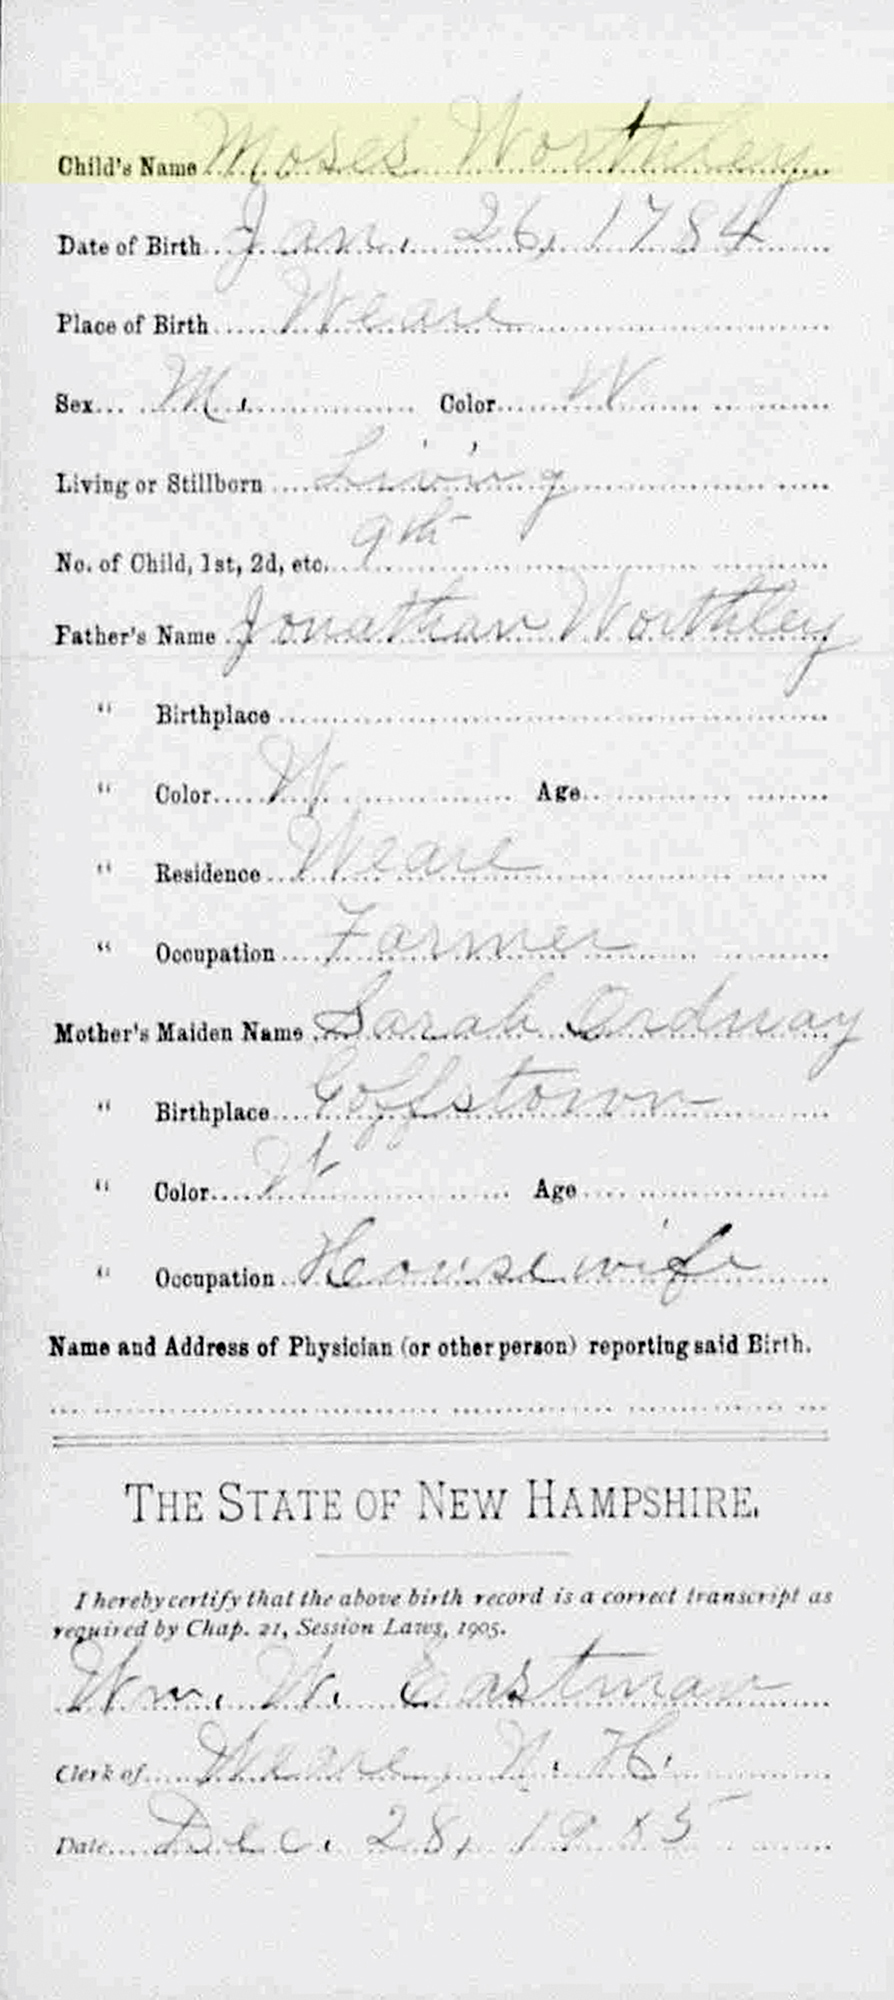 Child's Name Moses Worthley
Date of Birth Jan. 26, 1784
Place of Birth Weare
Sex M. Color W
Living or Stillborn Living
No. of Child, 1st, 2d, etc. 9th
Father's Name Jonathan Worthley
" Birthplace
" Color W Age
" Residence Weare
" Occupation Farmer
Mother's Maiden Name Sarah Ordway
" Birthplace Goffstown
" Color W Age
" Occupation Housewife
Name and Address of Physician (or other person) reporting said Birth.
THE STATE OF NEW HAMPSHIRE.
I hereby certify that the above birth record is a correct transcript as
required by Chap. 21, Session Laws, 1905.
Wm. W. Eastman
Clerk of Weare, N. H.
Date Dec. 28,